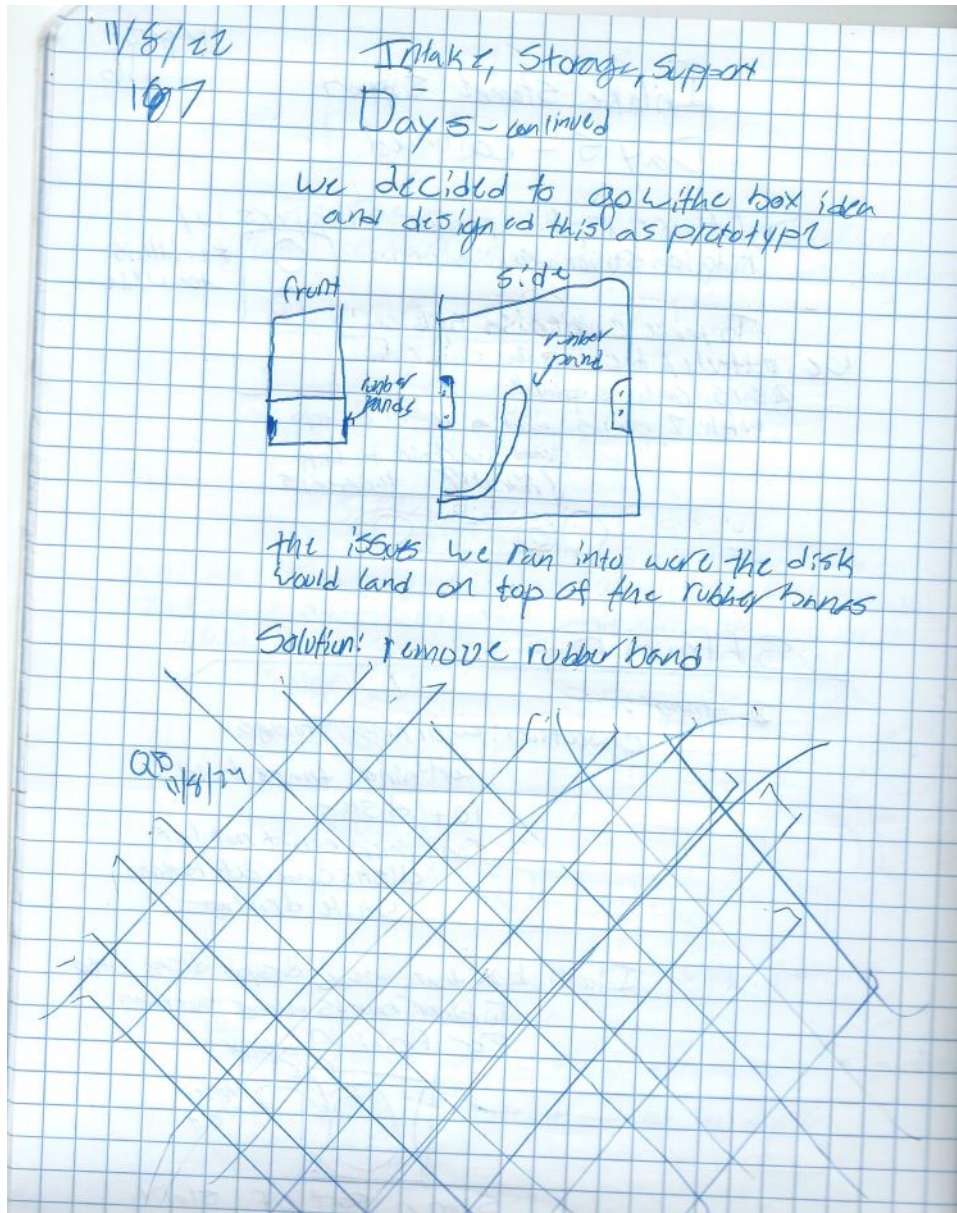 11/8/22
Intake, Storage, Support
Day 5 - continued
we decided to go withe box idea
and designed this as prototype
front
side
rubber
band
rubber
bands
the issues we ran into were the disk
would land on top of the rubber bands
Solution: remove rubber band
QB
11/8/24